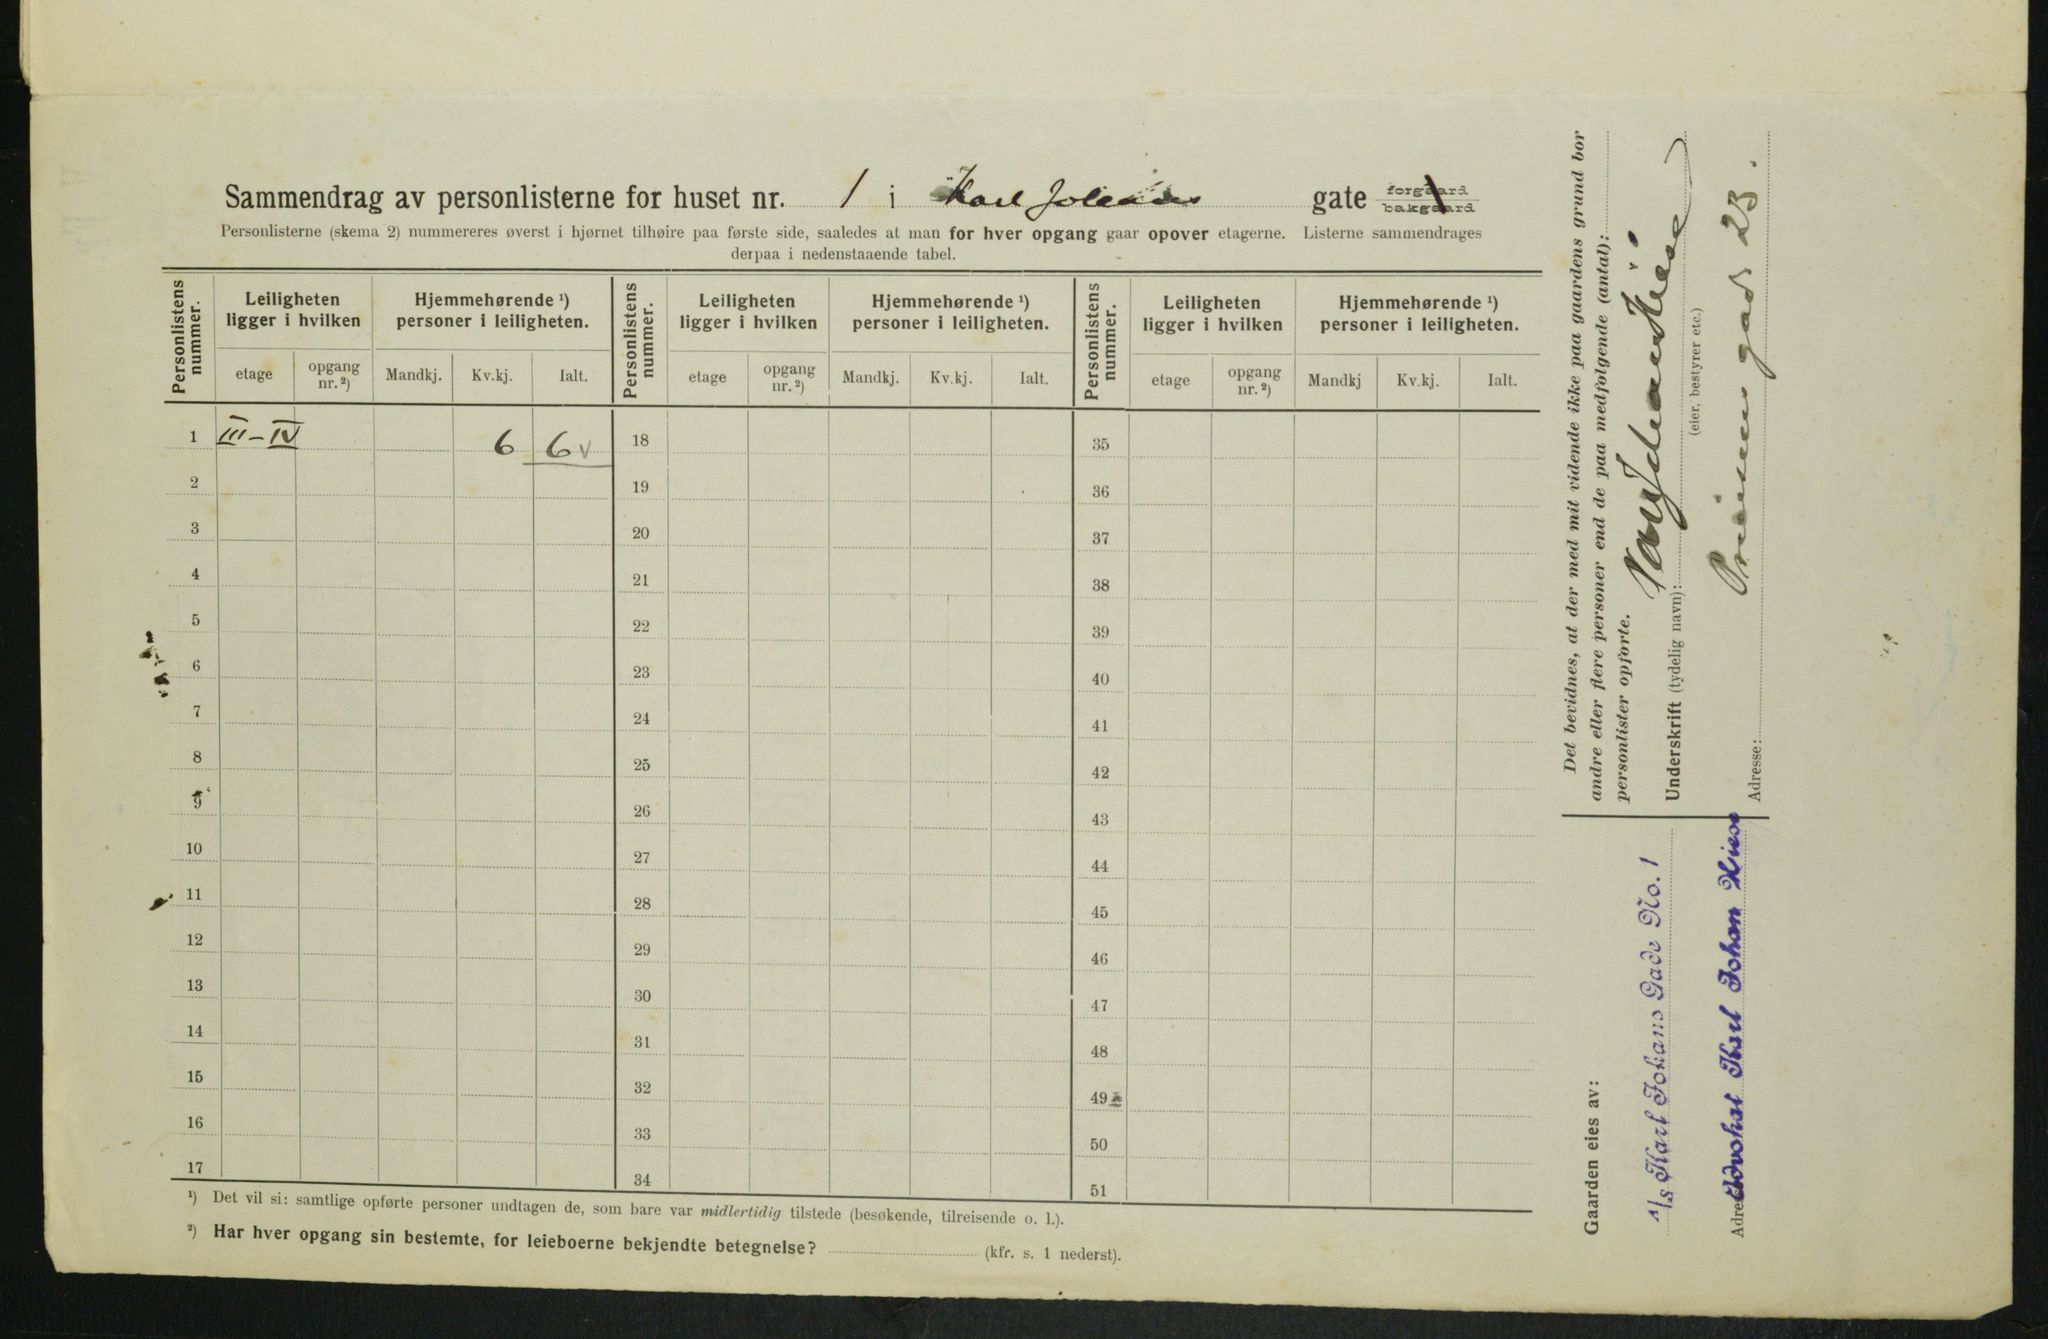 Sammendrag av personlisterne for huset nr. 1 i Karl Johans gate forgaard bakgaard
Personlisterne (skema 2) nummereres øverst i hjørnet tilhøire paa første side, saaledes at man for hver opgang gaar opover etagerne. Listerne sammendrages
derpaa i nedenstaaende tabel.
Personlistens nummer. Leiligheten ligger i hvilken Hjemmehørende ¹) personer i leiligheten. Personlistens nummer. Leiligheten ligger i hvilken Hjemmehørende ¹) personer i leiligheten. Personlistens nummer. Leiligheten ligger i hvilken Hjemmehørende ¹) personer i leiligheten.
etage opgang nr. ²) Mandkj. Kv.kj. Ialt. etage opgang nr. ²) Mandkj. Kv.kj. Ialt. etage opgang nr. ²) Mandkj Kv.kj. Ialt.
1 III-IV 6 6 v 18 35
2 19 36
3 20 37
4 21 38
5 22 39
6 23 40
7 24 41
8 25 42
9 26 43
10 27 44
11 28 45
12 29 46
13 30 47
14 31 48
15 32 49
16 33 50
17 34 51
¹) Det vil si: samtlige opførte personer undtagen de, som bare var midlertidig tilstede (besøkende, tilreisende o. l.).
²) Har hver opgang sin bestemte, for leieboerne bekjendte betegnelse? (kfr. s. 1 nederst).
Det bevidnes, at der med mit vidende ikke paa gaardens grund bor
andre eller flere personer end de paa medfølgende (antal):
personlister opførte.
Underskrift (tydelig navn): Karl Johan Kiese
(eier, bestyrer etc.)
Adresse: Prinsens gade 23.
Gaarden eies av:
A/S Karl Johans Gade No. 1
Adresse Advokat Karl Johan Kiese